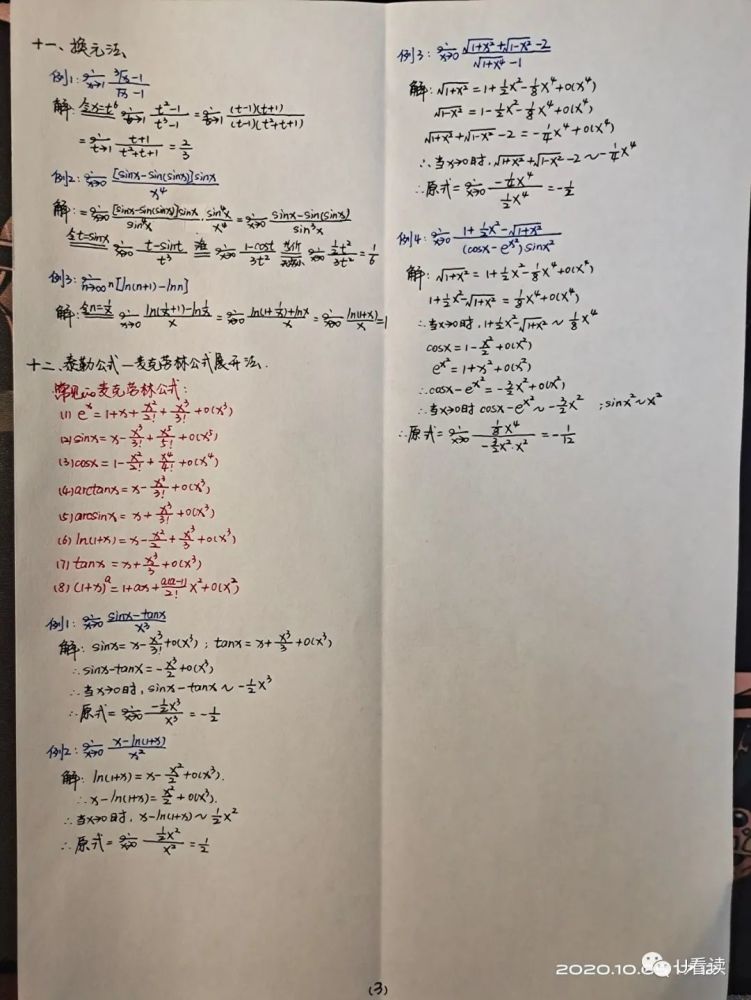 十一、换元法
例1: lim x→1 (∛x-1)/(√x-1)
解: 令x=t⁶ lim t→1 (t²-1)/(t³-1) = lim t→1 (t-1)(t+1)/(t-1)(t²+t+1)
= lim t→1 (t+1)/(t²+t+1) = 2/3
例2: lim x→0 [sinx-sin(sinx)]sinx/x⁴
解: = lim x→0 [sinx-sin(sinx)]sinx/sin⁴x · sin⁴x/x⁴ = lim x→0 (sinx-sin(sinx))/sin³x
令t=sinx lim x→0 (t-sint)/t³ 洛 lim x→0 (1-cost)/3t² 等价无穷小 lim x→0 ½t²/3t² = 1/6
例3: lim n→∞ n[ln(n+1)-lnn]
解: 令n=1/x lim x→0 (ln(1/x+1)-ln1/x)/x = lim x→0 (ln(1+1/x)+lnx)/x = lim x→0 ln(1+x)/x =1
十二、泰勒公式—麦克劳林公式展开法.
常见的麦克劳林公式:
(1) eˣ=1+x+x²/2!+x³/3!+o(x³)
(2) sinx=x-x³/3!+x⁵/5!+o(x⁵)
(3) cosx=1-x²/2!+x⁴/4!+o(x⁴)
(4) arctanx=x-x³/3!+o(x³)
(5) arcsinx=x+x³/3!+o(x³)
(6) ln(1+x)=x-x²/2+x³/3+o(x³)
(7) tanx=x+x³/3+o(x³)
(8) (1+x)ᵃ=1+ax+a(a-1)/2! x²+o(x²)
例1: lim x→0 (sinx-tanx)/x³
解: sinx=x-x³/3!+o(x³) ; tanx=x+x³/3+o(x³)
∴sinx-tanx=-x³/2+o(x³)
∴当x→0时, sinx-tanx~-½x³
∴原式= lim x→0 -½x³/x³ = -1/2
例2: lim x→0 (x-ln(1+x))/x²
解: ln(1+x)=x-x²/2+o(x³).
∴x-ln(1+x)=x²/2+o(x³).
∴当x→0时, x-ln(1+x)~½x²
∴原式= lim x→0 ½x²/x² = 1/2
例3: lim x→0 (√(1+x²)+√(1-x²)-2)/(√(1+x⁴)-1)
解: √(1+x²)=1+½x²-⅛x⁴+o(x⁴)
√(1-x²)=1-½x²-⅛x⁴+o(x⁴)
√(1+x²)+√(1-x²)-2=-¼x⁴+o(x⁴)
∴当x→0时, √(1+x²)+√(1-x²)-2~-¼x⁴
∴原式= lim x→0 -¼x⁴/½x⁴ = -1/2
例4: lim x→0 (1+½x²-√(1+x²))/(cosx-e^x²)sinx²
解: √(1+x²)=1+½x²-⅛x⁴+o(x⁴)
1+½x²-√(1+x²)=⅛x⁴+o(x⁴)
∴当x→0时, 1+½x²-√(1+x²)~⅛x⁴
cosx=1-x²/2+o(x²)
e^x²=1+x²+o(x²)
∴cosx-e^x²=-3/2x²+o(x²)
∴当x→0时 cosx-e^x²~-3/2x² ; sinx²~x²
∴原式= lim x→0 ⅛x⁴/-3/2x²·x² = -1/12
(3)